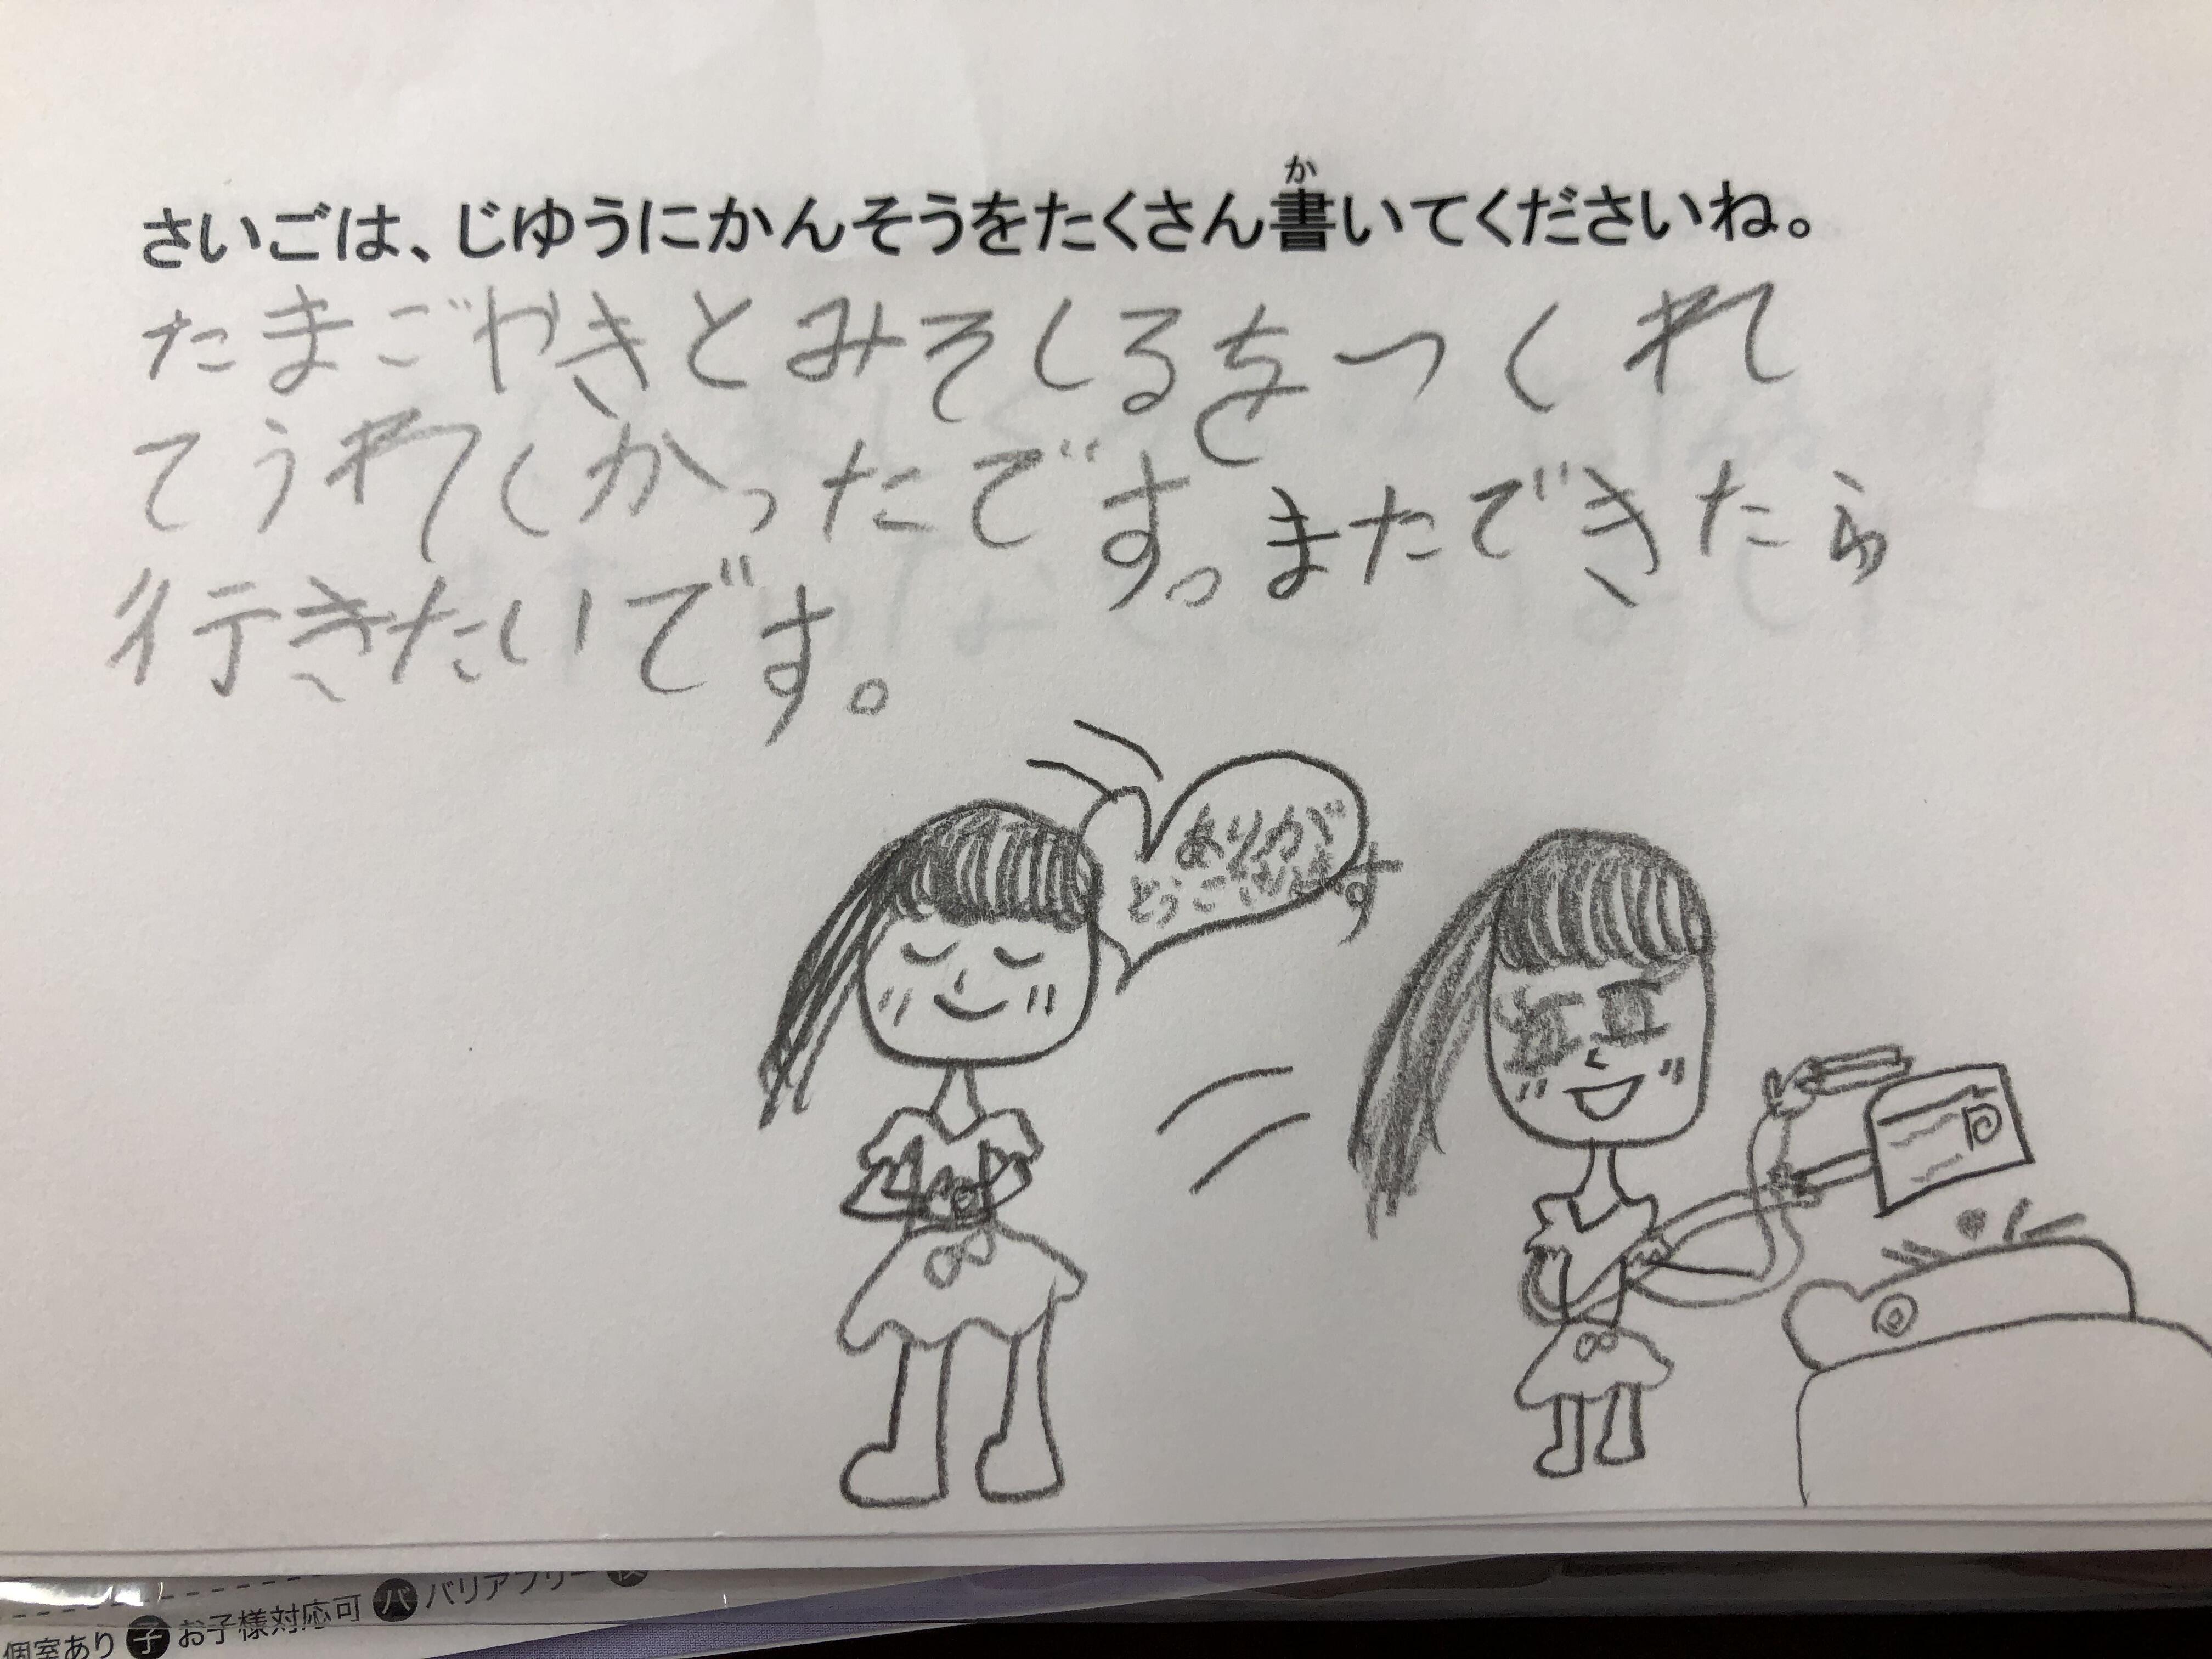 か
さいごは、じゆうにかんそうをたくさん書いてくださいね。
たまごやきとみそしるをつくれ
てうれしかったです。またできたら
行きたいです。
ありが
とうございます
個室あり 子 お子様対応可 バ バリアフリー